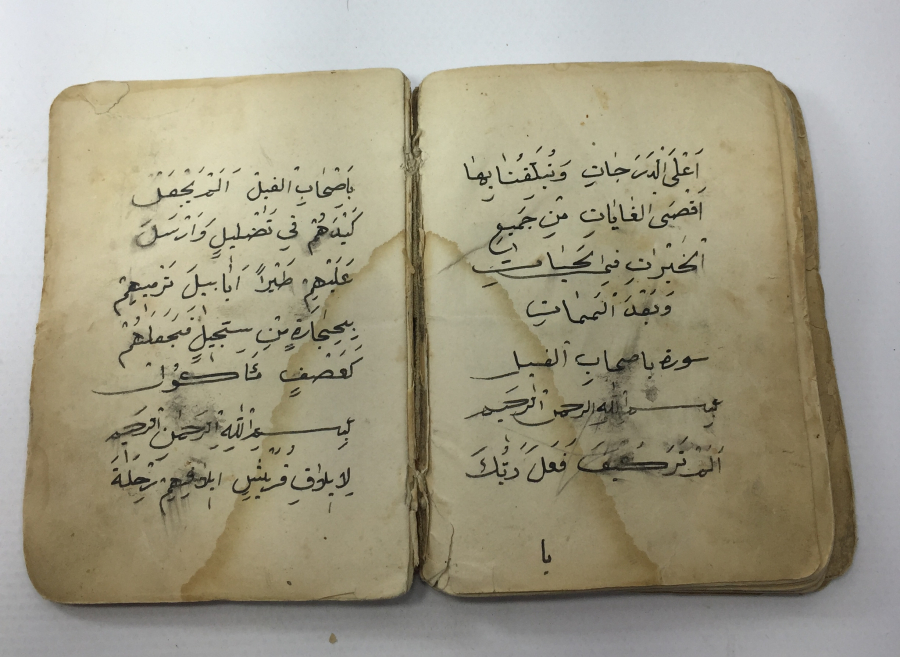 اَعْلَى الدَّرَجَاتِ وَتُبَلِّغُنَا بِهَا
اَقْصَى الْغَايَاتِ مِنْ جَمِيعِ
الْخَيْرَاتِ فِى الْحَيَاتِ
وَبَعْدَ الْمَمَاتِ
سورة باصحاب الفيل
بِسْمِ اللهِ الرحمن الرحيم
اَلَمْ تَرَ كَيْفَ فَعَلَ رَبُّكَ
با
بِاَصْحَابِ الْفِيلْ اَلَمْ يَجْعَلْ
كَيْدَهُمْ فِي تَضْلِيلٍ وَاَرْسَلَ
عَلَيْهِمْ طَيْراً اَبَابِيلَ تَرْمِيهِمْ
بِحِجَارَةٍ مِنْ سِجِّيلٍ فَجَعَلَهُمْ
كَعَصْفٍ مَأْكُولٍ
بِسْمِ اللهِ الرَّحْمٰنِ الرَّحِيمِ
لِاِيلَافِ قُرَيْشٍ اِيلَافِهِمْ رِحْلَةَ